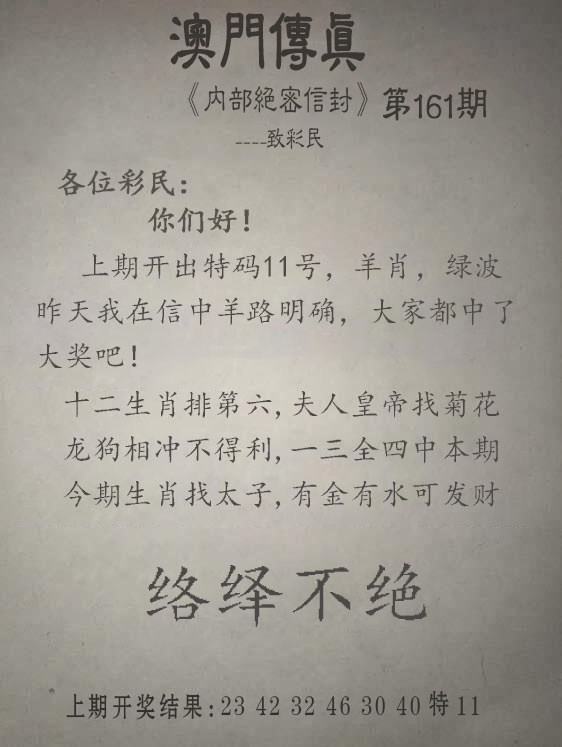 澳門傳眞
《内部絕密信封》第161期
----致彩民
各位彩民：
你们好！
上期开出特码11号，羊肖，绿波
昨天我在信中羊路明确，大家都中了
大奖吧！
十二生肖排第六,夫人皇帝找菊花
龙狗相冲不得利,一三全四中本期
今期生肖找太子,有金有水可发财
络绎不绝
上期开奖结果:23 42 32 46 30 40 特 11